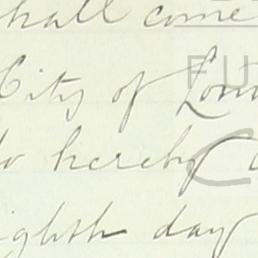 shall come
City of Lon
do hereby
eighth day